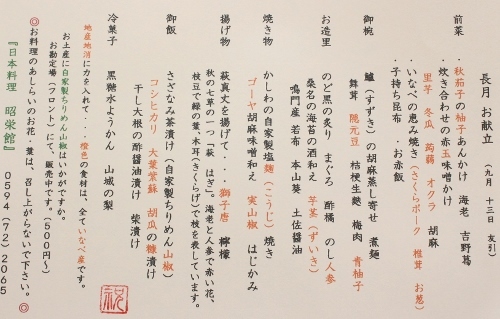 長月 お献立 (九月 十三日 友引)
前菜 ・秋茄子の柚子あんかけ 海老 吉野葛
・炊き合わせの赤玉味噌かけ
里芋 冬瓜 蒟蒻 オクラ 胡麻
・いなべの恵み焼き(さくらポーク 椎茸 お葱)
・子持ち昆布 ・お赤飯
御椀 鱸(すずき)の胡麻蒸し寄せ 煮麺
舞茸 隠元豆 桔梗生麩 梅肉 青柚子
お造り のど黒の炙り まぐろ 酢橘 のし人参
桑名の海苔の酒和え 芋茎(ずいき)
鳴門産 若布 本山葵 土佐醤油
焼き物 かしわの自家製塩麹(こうじ)焼き
ゴーヤ胡麻味噌和え 実山椒 はじかみ
揚げ物 萩真丈を揚げて・・獅子唐 檸檬
秋の七草の一つ「萩 はぎ」。海老と人参で赤い花、
枝豆の緑の葉、木耳(きくらげ)で枝を表しています。
御飯 さざなみ茶漬け(自家製ちりめん山椒)
コシヒカリ 大葉紫蘇 胡瓜の糠漬け
干し大根の酢醤油漬け 柴漬け
冷菓子 黒糖水ようかん 山城の梨
地産地消に力を入れて・・橙色の食材は、全ていなべ産です。
お土産に自家製ちりめん山椒はいかがですか。
お勘定場(フロント)にて、販売中です。(500円〜)
◎お料理のあしらいのお花・葉は、召し上がらないで下さい。◎
『日本料理 昭栄館』 0594(72)2065
祝